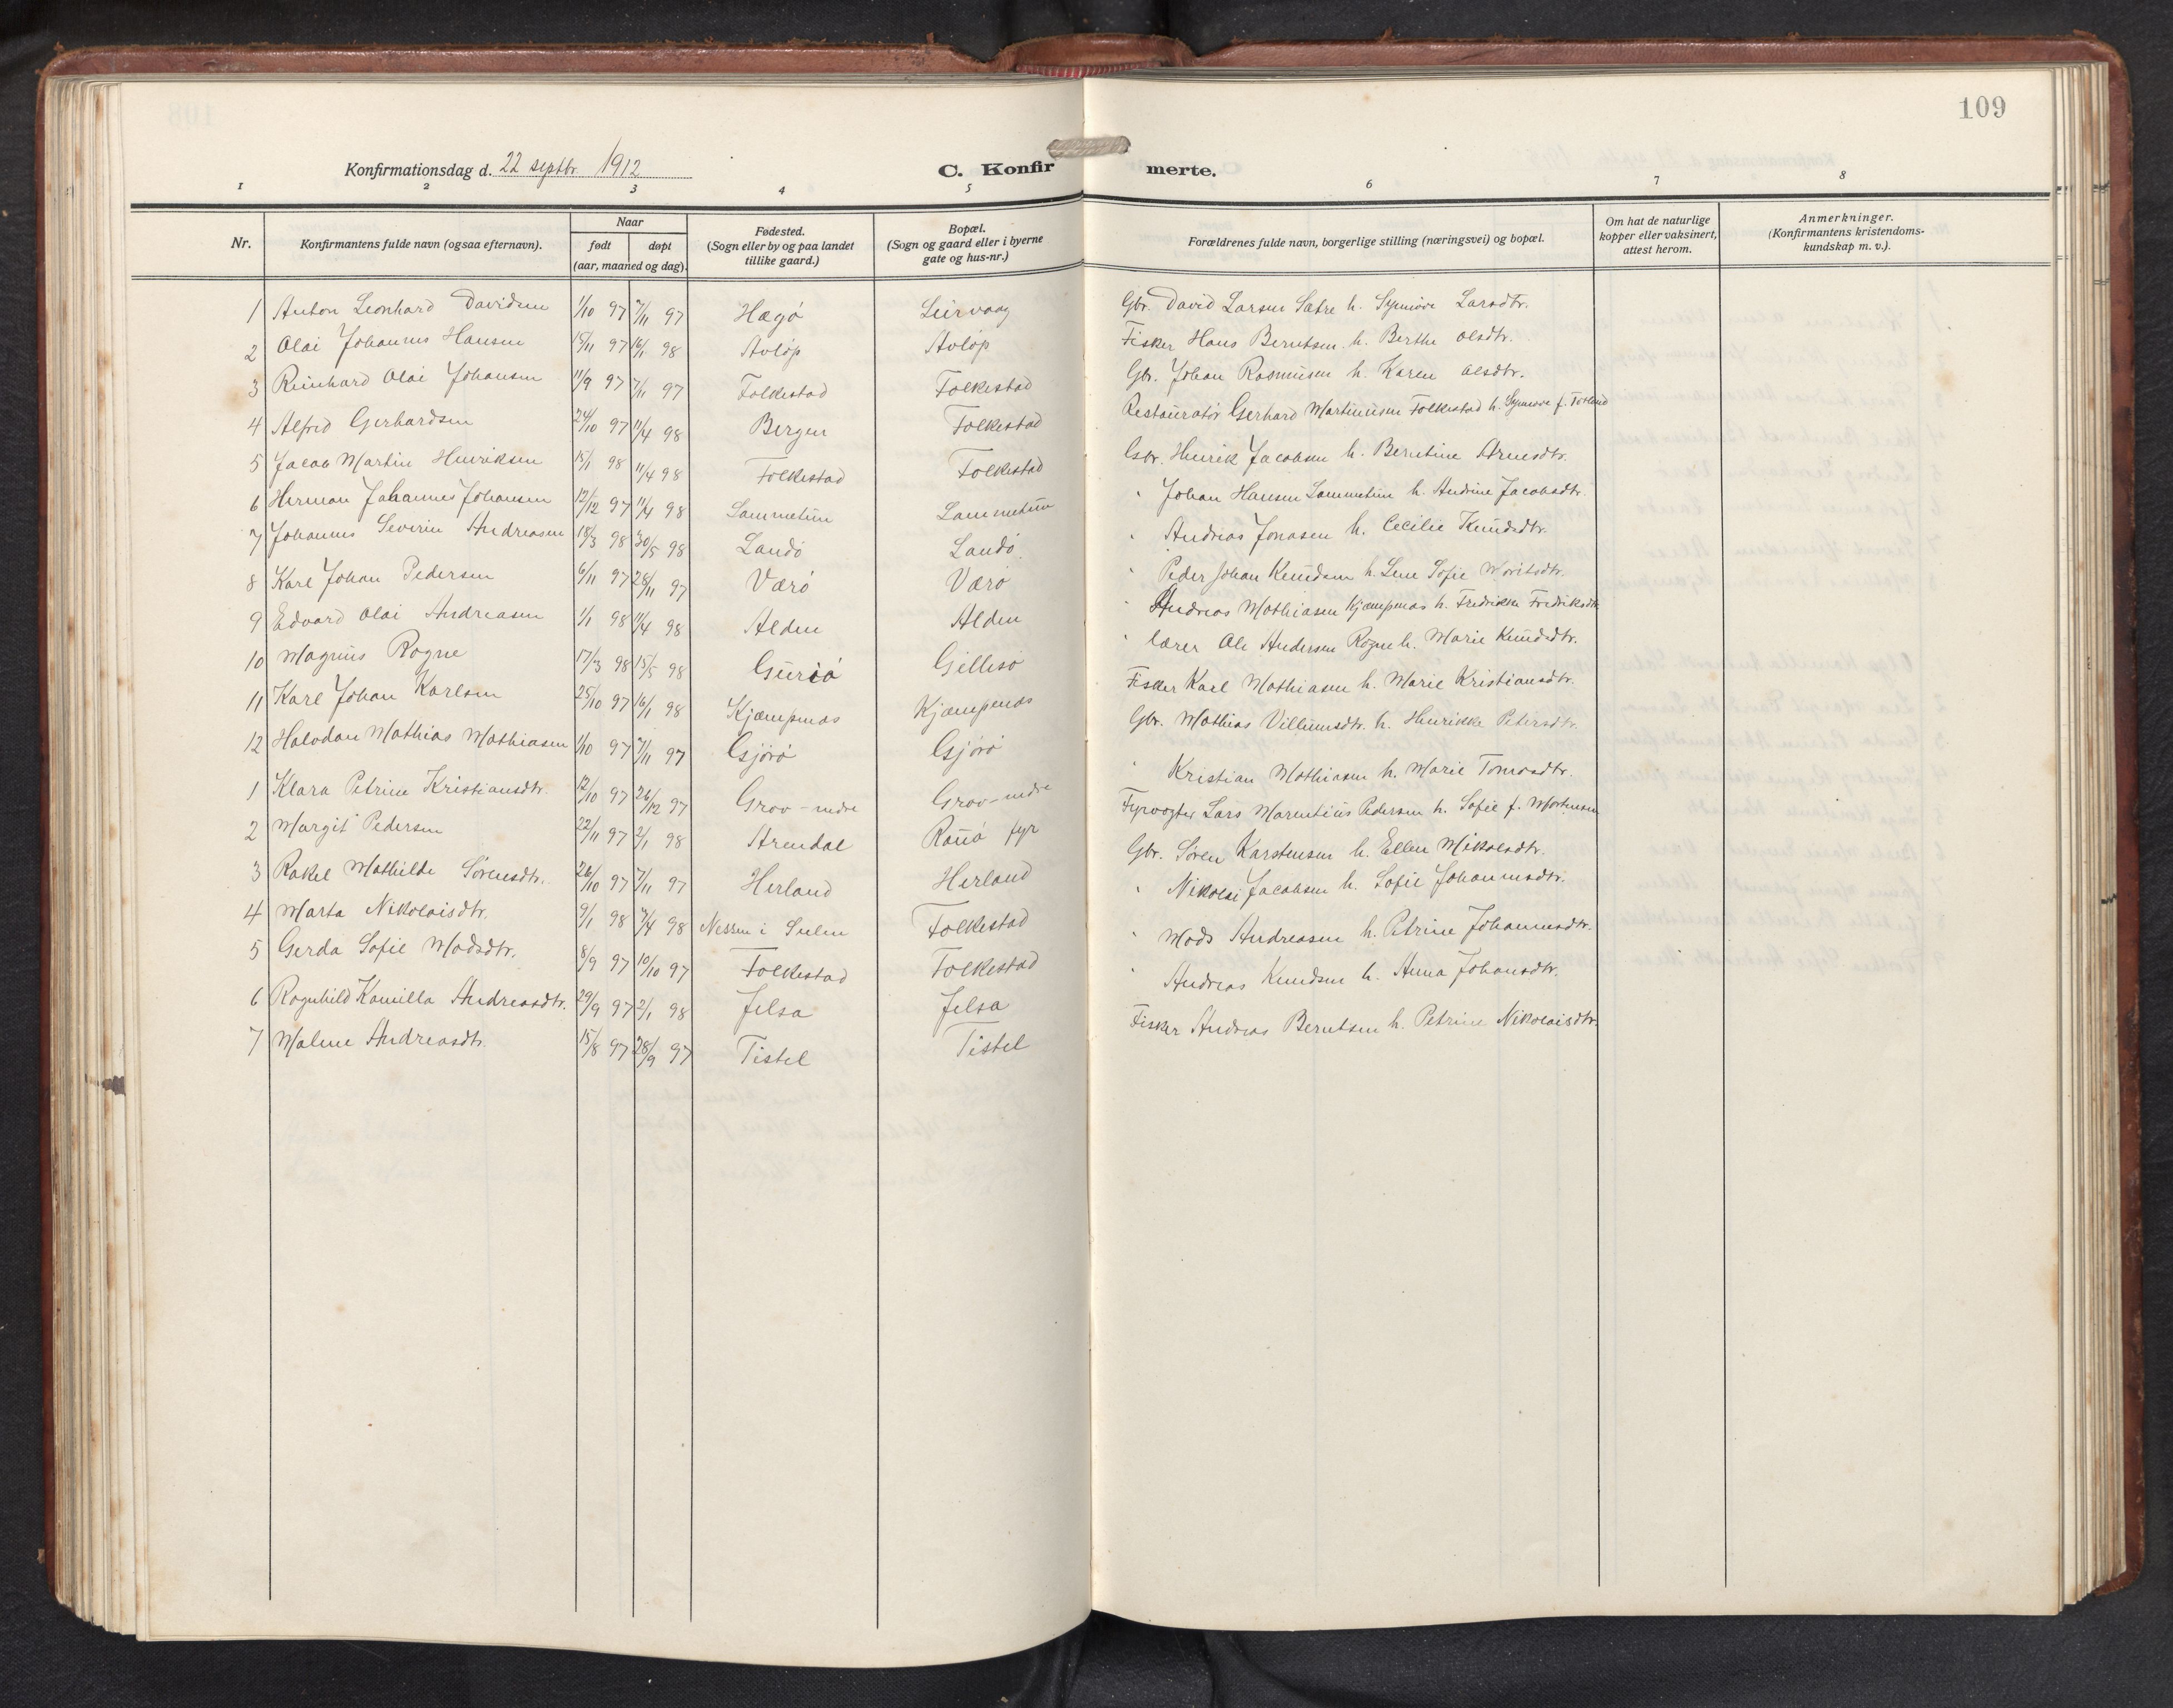 109
Konfirmationsdag d. 22 septbr 1912
C. Konfirmerte.
1 2 3 4 5 6 7 8
Nr.
Konfirmantens fulde navn (ogsaa efternavn).
Naar
født
døpt
(aar, maaned og dag).
Fødested.
(Sogn eller by og paa landet
tillike gaard.)
Bopæl.
(Sogn og gaard eller i byerne
gate og hus-nr.)
Forældrenes fulde navn, borgerlige stilling (næringsvei) og bopæl.
Om hat de naturlige
kopper eller vaksinert,
attest herom.
Anmerkninger.
(Konfirmantens kristendoms-
kundskap m. v.).
1 Anton Leonhard Davidsen 1/10 97 7/11 97 Hægö Leirvaag Gbr. David Larsen Sætre h. Synnöve Larsdtr.
2 Olai Johannes Hansen 15/11 97 16/1 98 Avlöp Avlöp Fisker Hans Berntsen h. Berthe Olsdtr.
3 Reinhard Olai Johansen 11/9 97 7/11 97 Folkestad Folkestad Gbr. Johan Rasmusen h. Karen Olsdtr.
4 Alfred Gerhardsen 24/10 97 11/4 98 Bergen Folkestad Restauratör Gerhard Martinusen Folkestad h. Synnöve f.
5 Jacob Martin Henriksen 15/1 98 11/4 98 Folkestad Folkestad Gbr. Henrik Jacobsen h. Berntine Arnesdtr.
6 Herman Johannes Johansen 12/12 97 11/4 98 Lammetun Lammetun " Johan Hansen Lammetun h. Andrine Jacobsdtr.
7 Johannes Severin Andreasen 18/3 98 30/5 98 Landö Landö " Andreas Jonasen h. Cecilie Knudsdtr.
8 Karl Johan Pedersen 6/11 97 28/11 97 Værö Værö " Peder Johan Knudsen h. Lene Sofie
9 Edvard Olai Andreasen 1/1 98 11/4 98 Alden Alden " Andreas Mathiasen Kjæmpenæs h. Fredrikke Fredriksdtr.
10 Magnus Rogne 17/3 98 15/5 98 Gurö Gillesö " lærer Ole Andersen Rogne h. Marie Knudsdtr.
11 Karl Johan Karlsen 25/10 97 16/1 98 Kjæmpenæs Kjæmpenæs Fisker Karl Mathiasen h. Marie Kristiansdtr.
12 Halvdan Mathias Mathiasen 1/10 97 7/11 97 Gjörö Gjörö Gbr. Mathias Villumsdtr. h. Henrikke Petersdtr.
1 Klara Petrine Kristiansdtr. 12/10 97 26/12 97 Grov-nedre Grov-nedre " Kristian Mathiasen h. Marie Tomasdtr.
2 Margit Pedersen 22/11 97 2/1 98 Arendal Rauö fyr Fyrvogter Lars Marentius Pedersen h. Sofie f. Mortensen
3 Rakel Mathilde Sörensdtr. 26/10 97 7/11 97 Herland Herland Gbr. Sören Karstensen h. Ellen Mikalsdtr.
4 Marta Nikolaisdtr. 9/1 98 7/4 98 Nessen i Sulen Folkestad " Nikolai Jacobsen h. Sofie Johannesdtr.
5 Gerda Sofie Madsdtr. 8/9 97 10/10 97 Folkestad Folkestad " Mads Andreasen h. Petrine Johannesdtr.
6 Ragnhild Kamilla Andreasdtr. 29/9 97 2/1 98 Jelsa Jelsa " Andreas Knudsen h. Anna Johansdtr.
7 Malene Andreasdtr. 15/8 97 28/9 97 Tistel Tistel Fisker Andreas Berntsen h. Petrine Nikolaisdtr.